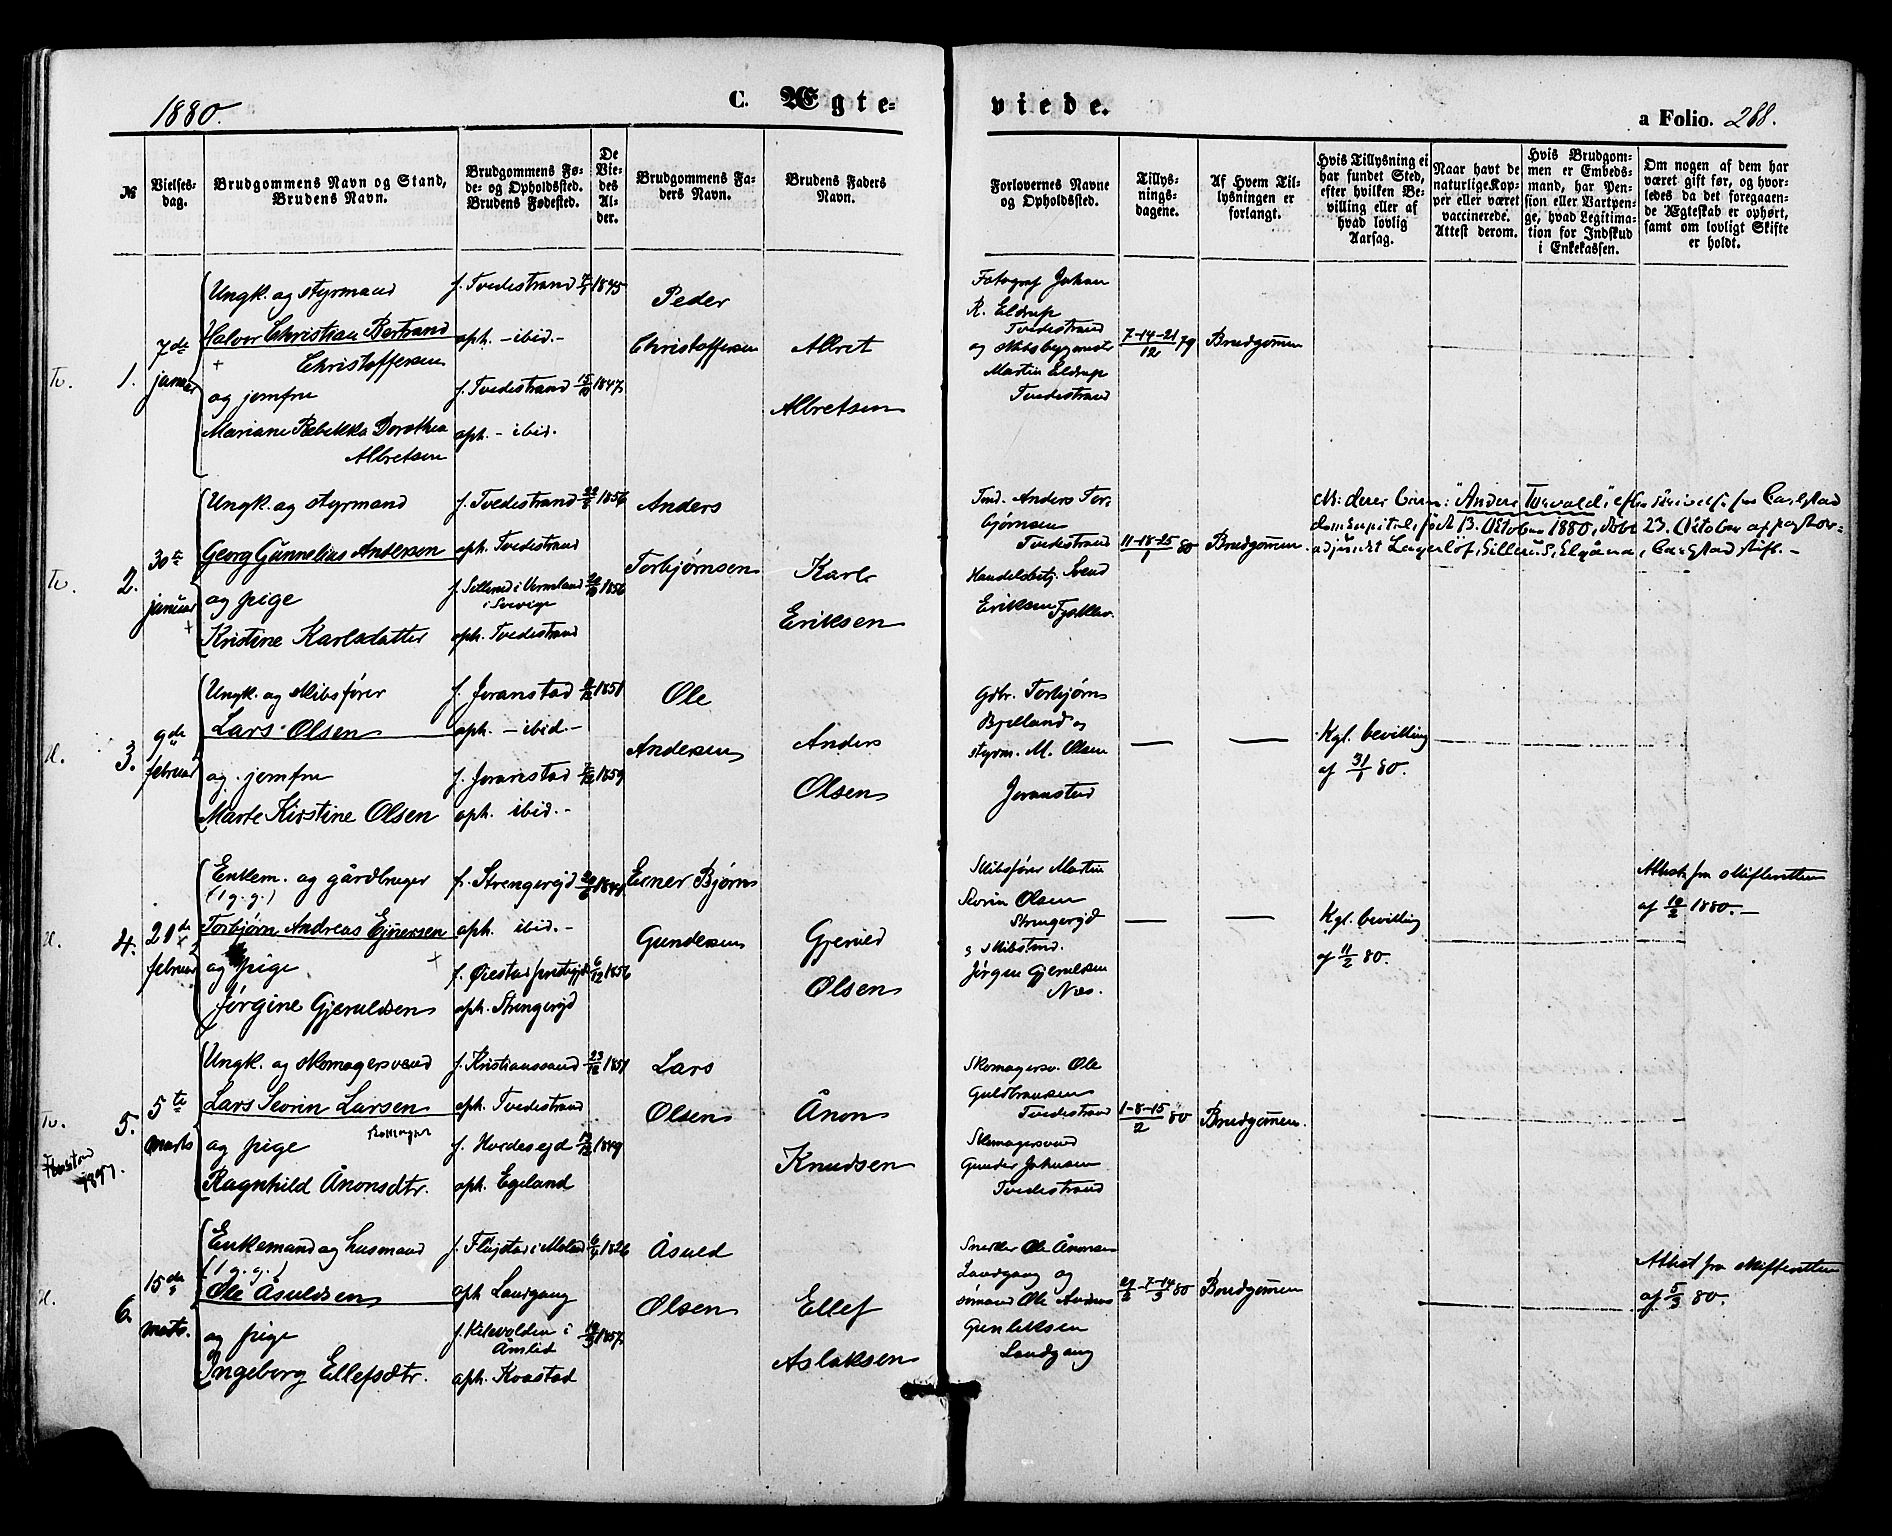 1880.
C. Ægte-
viede.
a Folio. 268.
№
Vielses-
dag.
Brudgommens Navn og Stand,
Brudens Navn.
Brudgommens Fø-
de- og Opholdssted.
Brudens Fødested.
De
Vie-
des
Al-
der.
Brudgommens Fa-
ders Navn.
Brudens Faders
Navn.
Forlovernes Navne
og Opholdssted.
Tillys-
nings-
dagene.
Af Hvem Til-
lysningen er
forlangt.
Hvis Tillysning ei
har fundet Sted,
efter hvilken Be-
villing eller af
hvad lovlig
Aarsag.
Naar havt de
naturlige Kop-
per eller været
vaccinerede.
Attest derom.
Hvis Brudgom-
men er Embeds-
mand, har Pen-
sion eller Vartpen-
ge, hvad Legitima-
tion for Indskud
i Enkekassen.
Om nogen af dem har
været gift før, og hvor-
ledes da det foregaaen-
de Ægteskab er ophørt,
samt om lovligt Skifte
er holdt.
Tv.
1.
7de
januar
Ungk. og styrmand
Halvor Christian Bertrand
Christoffersen
og jomfru
Mariane Rebekka Dorothea
Albretsen
f. Tvedestrand
oph. - ibid. -
f. Tvedestrand
oph. - ibid.
7/1 1845
15/10 1847
Peder
Christoffersen
Albret
Albretsen
Fotograf Johan
R. Eldrup
Tvedestrand
og skibsbygmester
Martin Eldrup
Tvedestrand
7-14-21/12 79
Brudgommen
Tv.
2.
30te
januar
Ungk. og styrmand
Georg Gunnelius Andersen
og pige
Kristine Karlsdatter
f. Tvedestrand
oph. Tvedestrand
f. Sillerud i Vermland
i Sverige
oph. Tvedestrand
1856
1856
Anders
Torbjørnsen
Karl
Eriksen
Tmd. Anders Tor-
bjørnsen
Tvedestrand
Handelsbetj. Svend
Eriksen
11-18-25/1 80
Brudgommen
"Anders Torvald"
født 13. Oktober 1880, døbt 23. Oktober
adjunkt Lagerlöf, Sillerud, Elgåna, Carlstad stift. -
3.
9de
februar
Ungk. og skibsfører
Lars Olsen
og jomfru
Marte Kirstine Olsen
f. Joranstad
oph. - ibid -
f. Joranstad
oph. ibid. -
1851
1859
Ole
Andersen
Anders
Olsen
Gdbr. Torbjørn
Bjelland og
styrm. M. Olsen
Joranstad
Kgl. bevilling
af 31/1 80.
4.
21de
februar
Enkem. og gårdbruger
(1 g. g.)
Torbjørn Andreas Ejnersen
og pige
Jørgine Gjeruldsen
f. Strengereid
oph. ibid. -
f. Øiestad prestegjd
oph. Strengereid
6/12 1856
Einer Bjørn
Gundersen
Gjeruld
Olsen
Skibsfører Martin
Severin Olsen
Strengereid
Jørgen Gjeruldsen
Næs.
Kgl. bevilling
af 11/2 80.
Attest fra skifteretten
af 10/2 1880. -
Tv.
5.
5te
marts
1897.
Ungk. og skomagersvend
Lars Severin Larsen
og pige
Ragnhild Ånonsdtr.
f. Kristianssand
oph. Tvedestrand
f. Hovdesejd
oph. Egeland
23/12 1851
1849
Lars
Olsen
Ånon
Knudsen
Skomagersv. Ole
Guldbransen
Tvedestrand
Skomagersvend
Gunder Johnsen
Tvedestrand
1-8-15/2 80
Brudgommen.
6.
15de
marts.
Enkemand og husmand
(1 g. g.)
Ole Åsuldsen
og pige
Ingeborg Ellefsdtr.
f. Fløistad i Moland
oph Landgang
f. Kilevolden i
Åmlid
oph. Kvastad
1826
1857
Åsuld
Olsen
Ellef
Aslaksen
Snedker Ole Ånonsen
Landgang og
sømand Ole Anders
Gunleksen
Landgang
29/2-7-14/3 80
Brudgommen
Attest fra skifteretten
af 5/3 80.